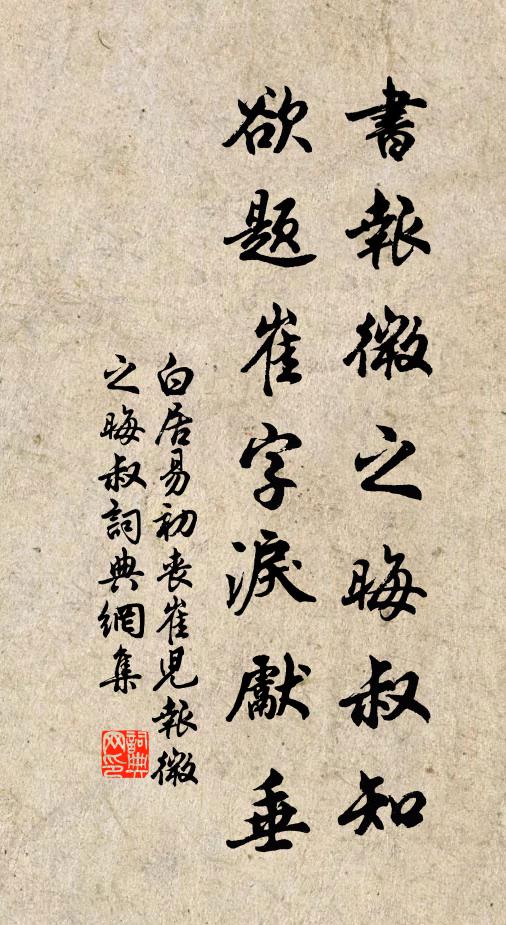 書報微之晦叔知
欲題崔字淚獻垂
白居易初喪崔兒報微
之晦叔詞典網集
詞典
网印